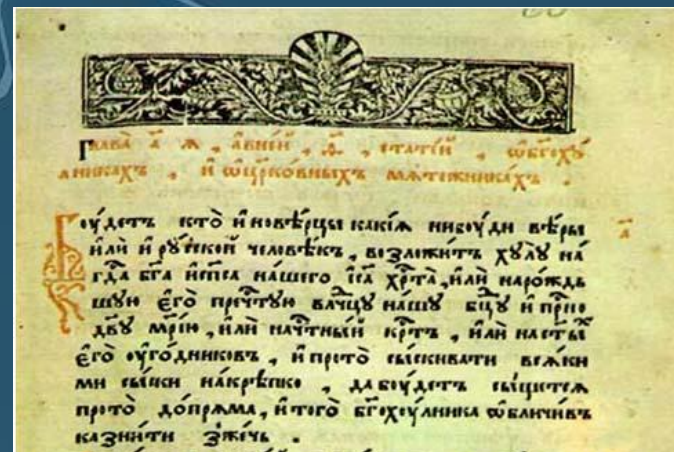 Глава̀ а҃ ѧ, а҆вне́й, ѳ҃, стате́й, ѡ҆бг҃охꙋ́
лникахъ, и҆ ѡ҆цр҃ко́вныхъ мѧте́жникахъ.
Боу́детъ кто̀ и҆новѣ́рцы какі́ѧ нибоу́ди вѣ́ры а҃
и҆лѝ и҆рꙋ́ской человѣ́къ, возложи́тъ хꙋлꙋ̀ на́
гд҃а бг҃а и҆сп҃са на́шего і҆с҃а хрⷭ҇та̀, и҆лѝ наро́ждь
шꙋю є҆го̀ пречⷭ҇тꙋю влⷣчцꙋ на́шꙋ бцⷣꙋ и҆ прⷭ҇но
дв҃ꙋ мр҃і́ю, и҆лѝ начⷭ҇тны́й крⷭ҇тъ, и҆лѝ наст҃ы́ⷯ
є҆го̀ оу҆го́дниковъ, и҆ прото̀ сы́скивати всѧ́ки
ми сы́ски на́крѣпко, да боу́детъ сы́щетсѧ
прото̀ до́прѧма, и҆того̀ бг҃охоу́лника ѡ҆бличи́въ
казни́ти зже́чь.